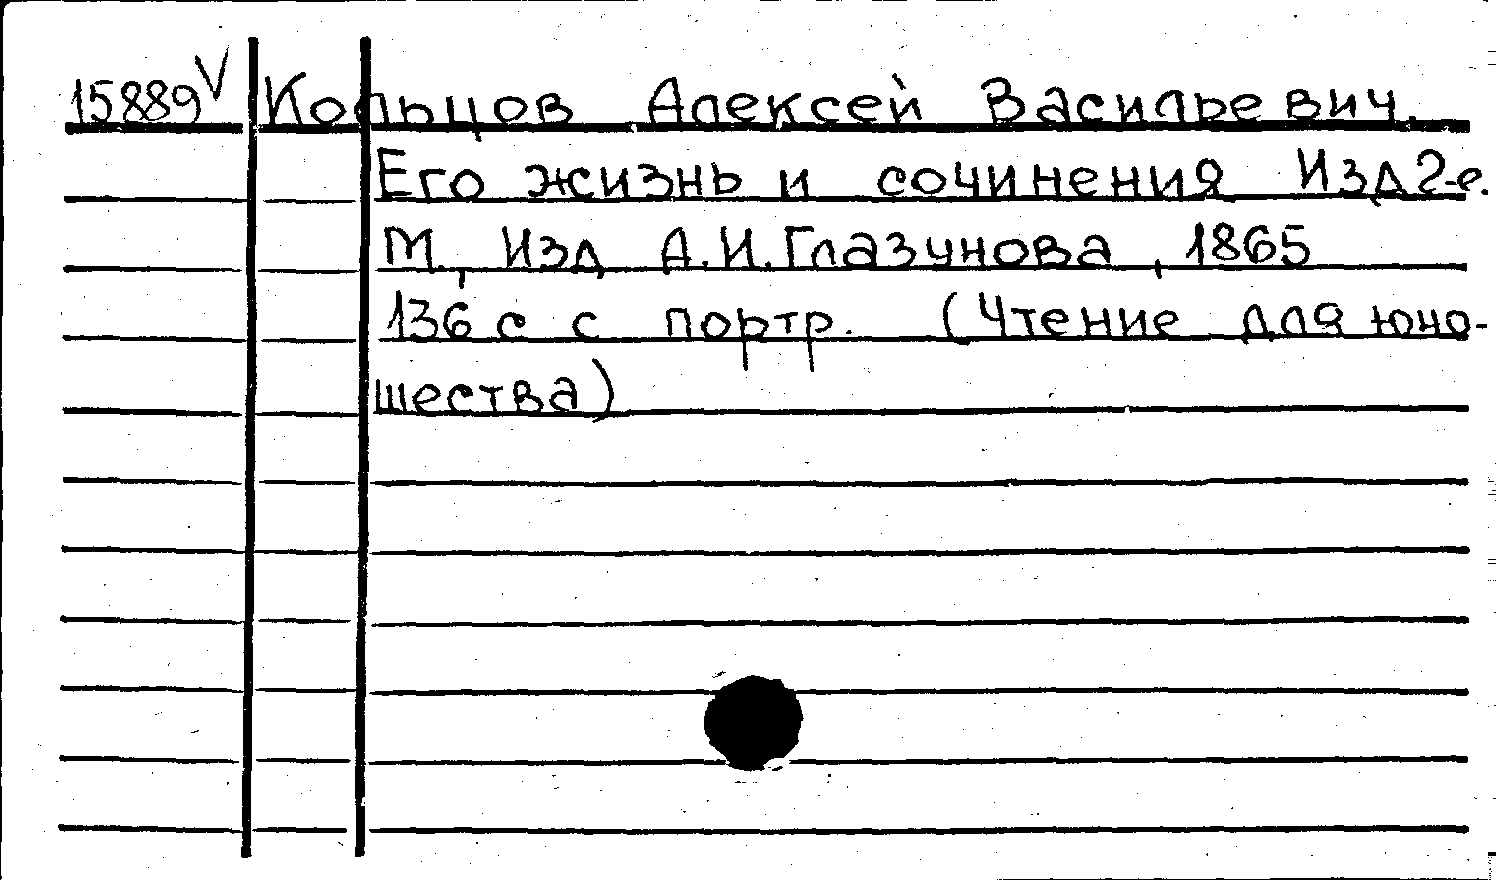 15889 V Кольцов Алексей Васильевич.
Его жизнь и сочинения Изд 2-е.
М., Изд А.И.Глазунова, 1865
136 с с портр. (Чтение для юно-
шества)